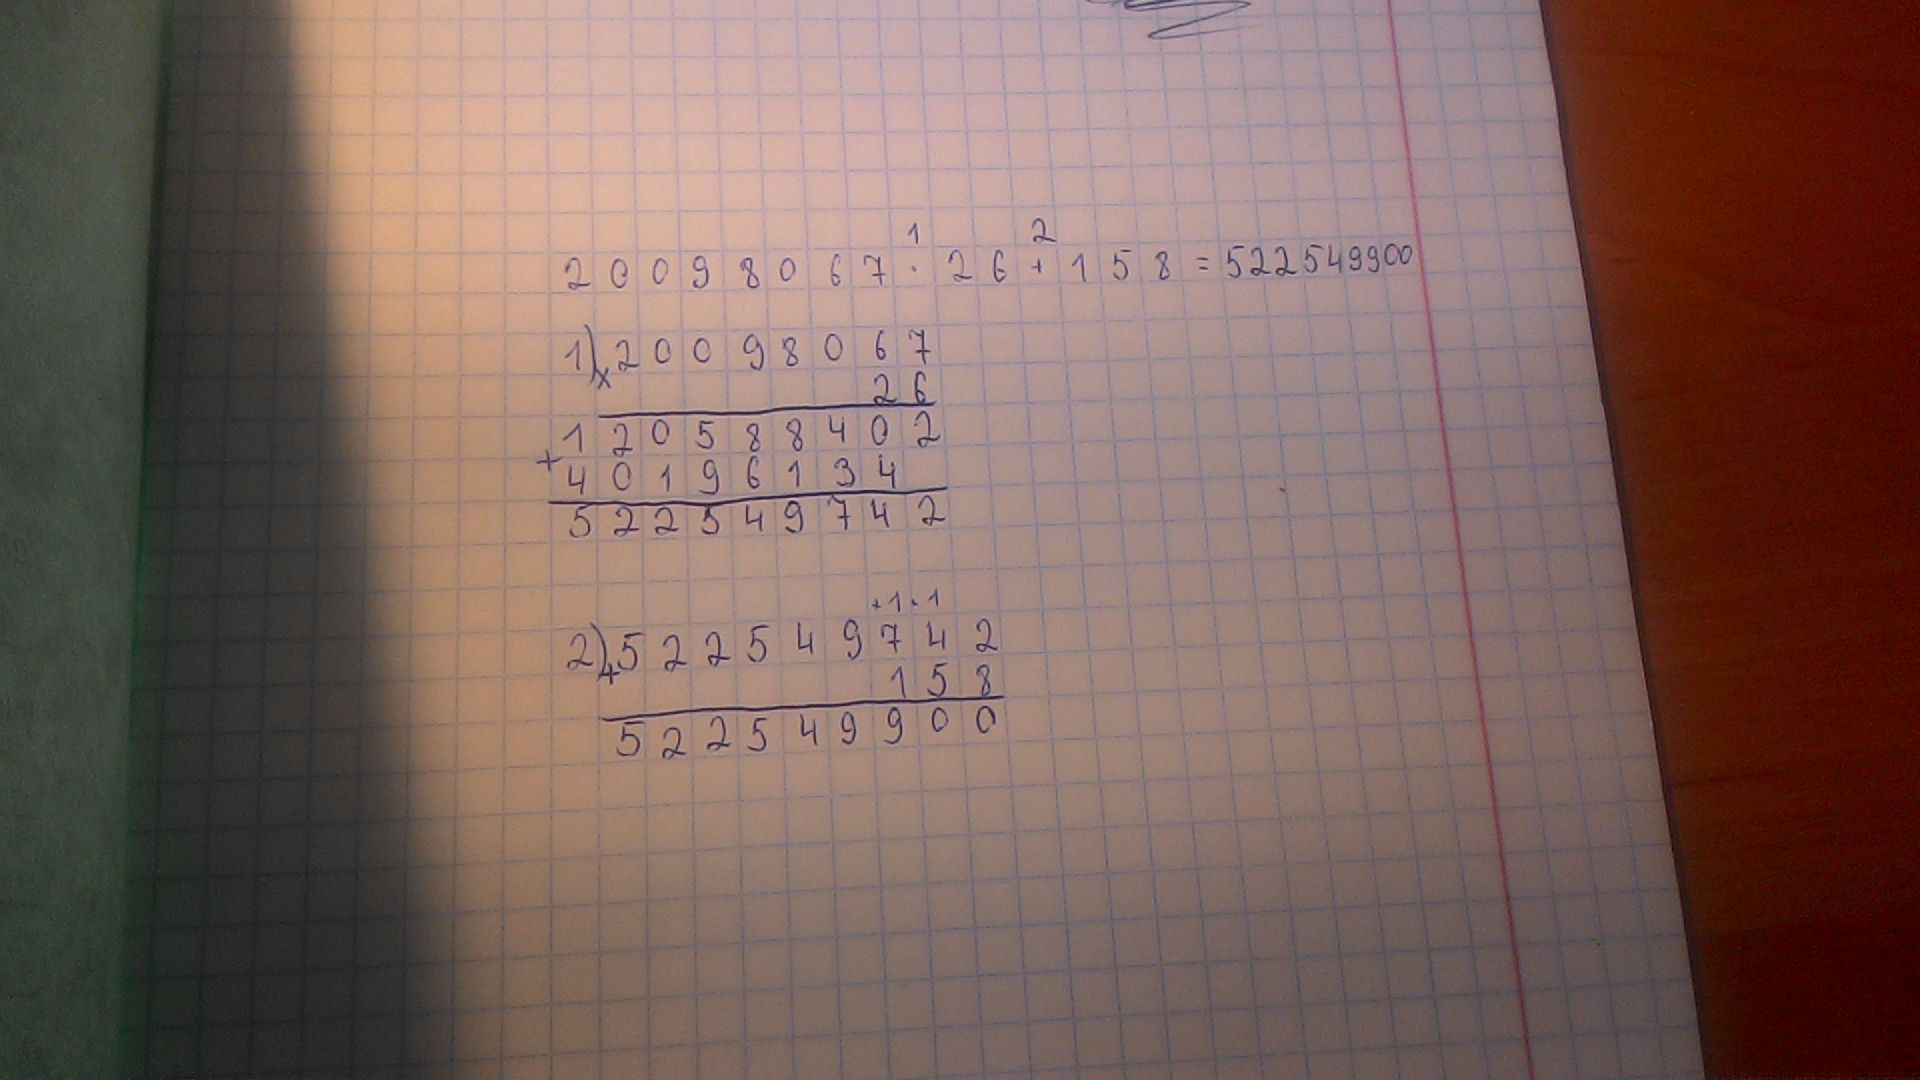 1 2
20098067 · 26 + 158 = 522549900
1) x 20098067
26
120588402
+ 40196134
522549742
+1 +1
2) + 522549742
158
522549900